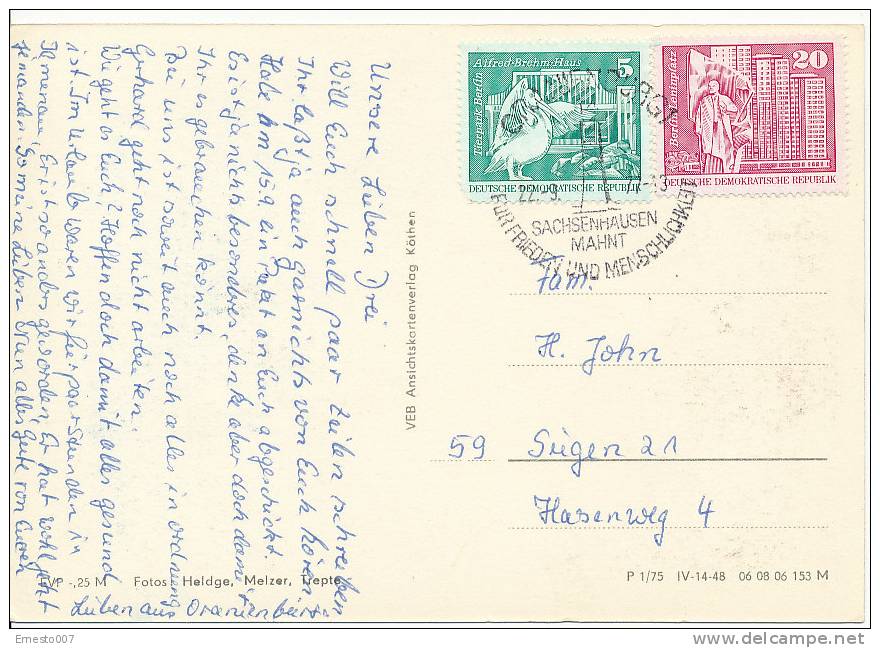 Unsere Lieben Drei
Will Euch schnell paar Zeilen schreiben
Ihr laßt ja auch garnichts von Euch hören.
Habe am 15.9. ein Paket an Euch abgeschickt.
Es ist ja nichts besonderes, denke aber doch daß
Ihr es gebrauchen könnt.
Bei uns ist soweit auch noch alles in Ordnung
Gerhard geht noch nicht arbeiten.
Wie geht es Euch? Hoffen doch damit alles gesund
ist. Im Urlaub waren wir für paar Stunden in
Ilmenau, Er ist so anders geworden, Er hat wohl jetzt
jemanden. So meine Lieben Drei alles Gute von Euren
Lieben aus Oranienburg
EVP -,25 M Fotos: Heldge, Melzer, Trepte
VEB Ansichtskartenverlag Köthen
Alfred-Brehm-Haus 5
Tierpark Berlin
DEUTSCHE DEMOKRATISCHE REPUBLIK
20
Berlin, Leninplatz
DEUTSCHE DEMOKRATISCHE REPUBLIK
22.9.
SACHSENHAUSEN
MAHNT
FÜR FRIEDEN UND MENSCHLICHKEIT
Fam.
H. John
59 Siegen 21
Hasenweg 4
P 1/75 IV-14-48 06 08 06 153 M
Ernesto007
www.delcampe.net